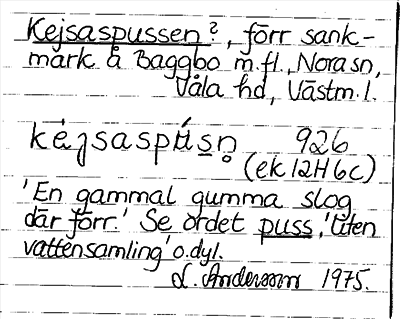 Kejsaspussen?, förr sank-
mark å Baggbo m.fl., Nora sn,
Våla hd, Västm. l.
kéjsaspúsn̥ 926
(ek 12H6c)
'En gammal gumma slog
där förr.' Se ordet puss, 'liten
vattensamling' o.dyl.
L. Andersson 1975.